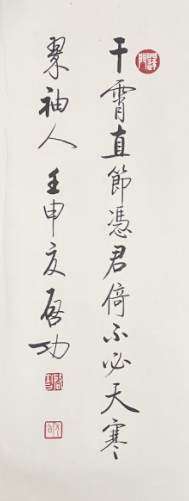 干霄直節憑君倚不必天寒
翠袖人 壬申夏 啓功